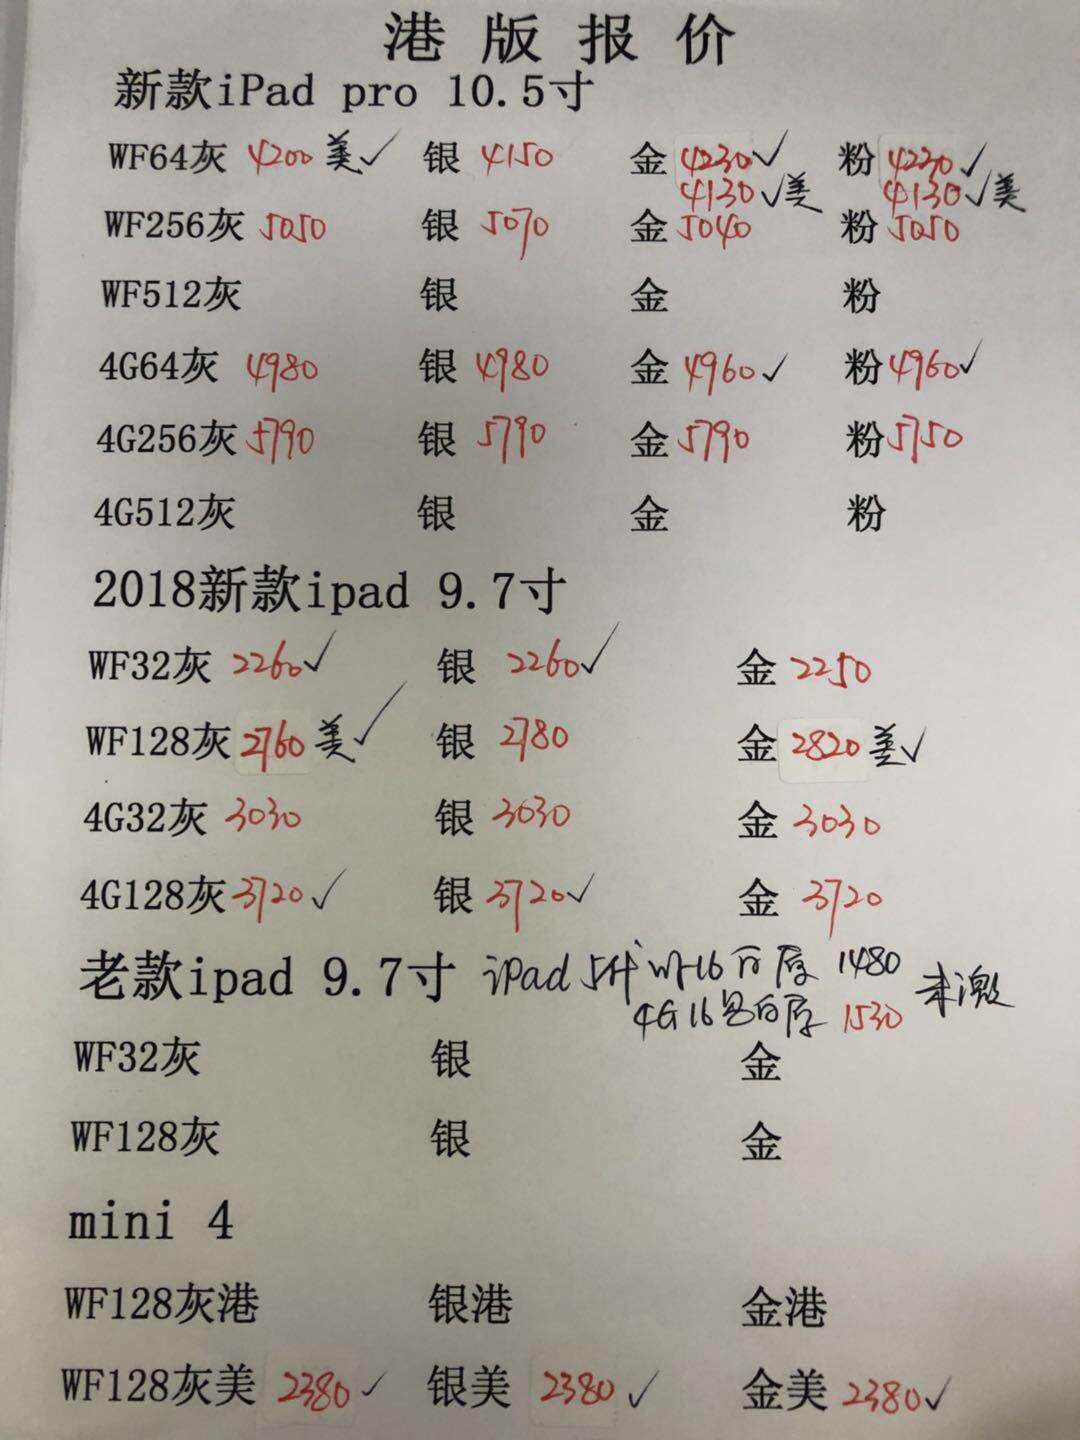 港版报价
新款iPad pro 10.5寸
WF64灰 4200 美✓ 银 4150 金 4230✓ 粉 4230✓
4130✓美 4130✓美
WF256灰 5050 银 5070 金 5040 粉 5050
WF512灰 银 金 粉
4G64灰 4980 银 4980 金 4960✓ 粉 4960✓
4G256灰 5790 银 5790 金 5790 粉 5750
4G512灰 银 金 粉
2018新款ipad 9.7寸
WF32灰 2260✓ 银 2260✓ 金 2250
WF128灰 2760 美✓ 银 2780 金 2820 美✓
4G32灰 3030 银 3030 金 3030
4G128灰 3720✓ 银 3720✓ 金 3720
老款ipad 9.7寸 iPad 5代 WF16 白原 1480 未激
4G16 白原 1530
WF32灰 银 金
WF128灰 银 金
mini 4
WF128灰港 银港 金港
WF128灰美 2380✓ 银美 2380✓ 金美 2380✓